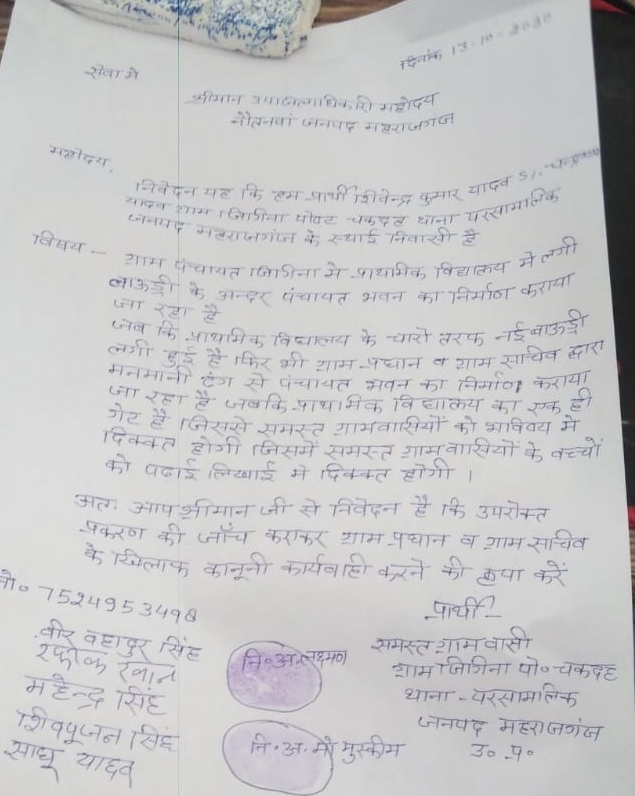 दिनांक 13-10-2020
सेवा मे
श्रीमान उपाजिलाधिकारी महोदय
नौतनवां जनपद महराजगंज
महोदय,
निवेदन यह कि हम प्रार्थी शिवेन्द्र कुमार यादव S/.
यादव ग्राम जिगिना पोस्ट चकदह थाना परसामालिक
जनपद महराजगंज के स्थाई निवासी है
विषय - ग्राम पंचायत जिगिना मे प्राथमिक विद्यालय मे लगी
बाऊड्री के अन्दर पंचायत भवन का निर्माण कराया
जा रहा है
जब कि प्राथमिक विद्यालय के चारो तरफ नई बाऊड्री
लगी हुई है फिर भी ग्राम प्रधान व ग्राम साचिव द्वारा
मनमानी ढंग से पंचायत भवन का निर्माण कराया
जा रहा है जबकि प्राथमिक विद्यालय का एक ही
गेट है जिससे समस्त ग्रामवासियों को भाविष्य मे
दिक्कत होगी जिसमें समस्त ग्राम वासियों के बच्चों
को पढाई लिखाई मे दिक्कत होगी ।
अतः आप श्रीमान जी से निवेदन है कि उपरोक्त
प्रकरण की जाँच कराकर ग्राम प्रधान व ग्राम साचिव
के खिलाफ कानूनी कार्यवाही करने की कृपा करें
मो० 7524953498
वीर वहादुर सिंह
खान
महेन्द्र सिंह
शिवपूजन सिंह
साधू यादव
नि०अ० लक्ष्मण
नि०अ० मो मुस्कीम
प्रार्थी-
समस्त ग्राम वासी
ग्राम जिगिना पो० चकदह
थाना - परसामालिक
जनपद महराजगंज
उ० प्र०